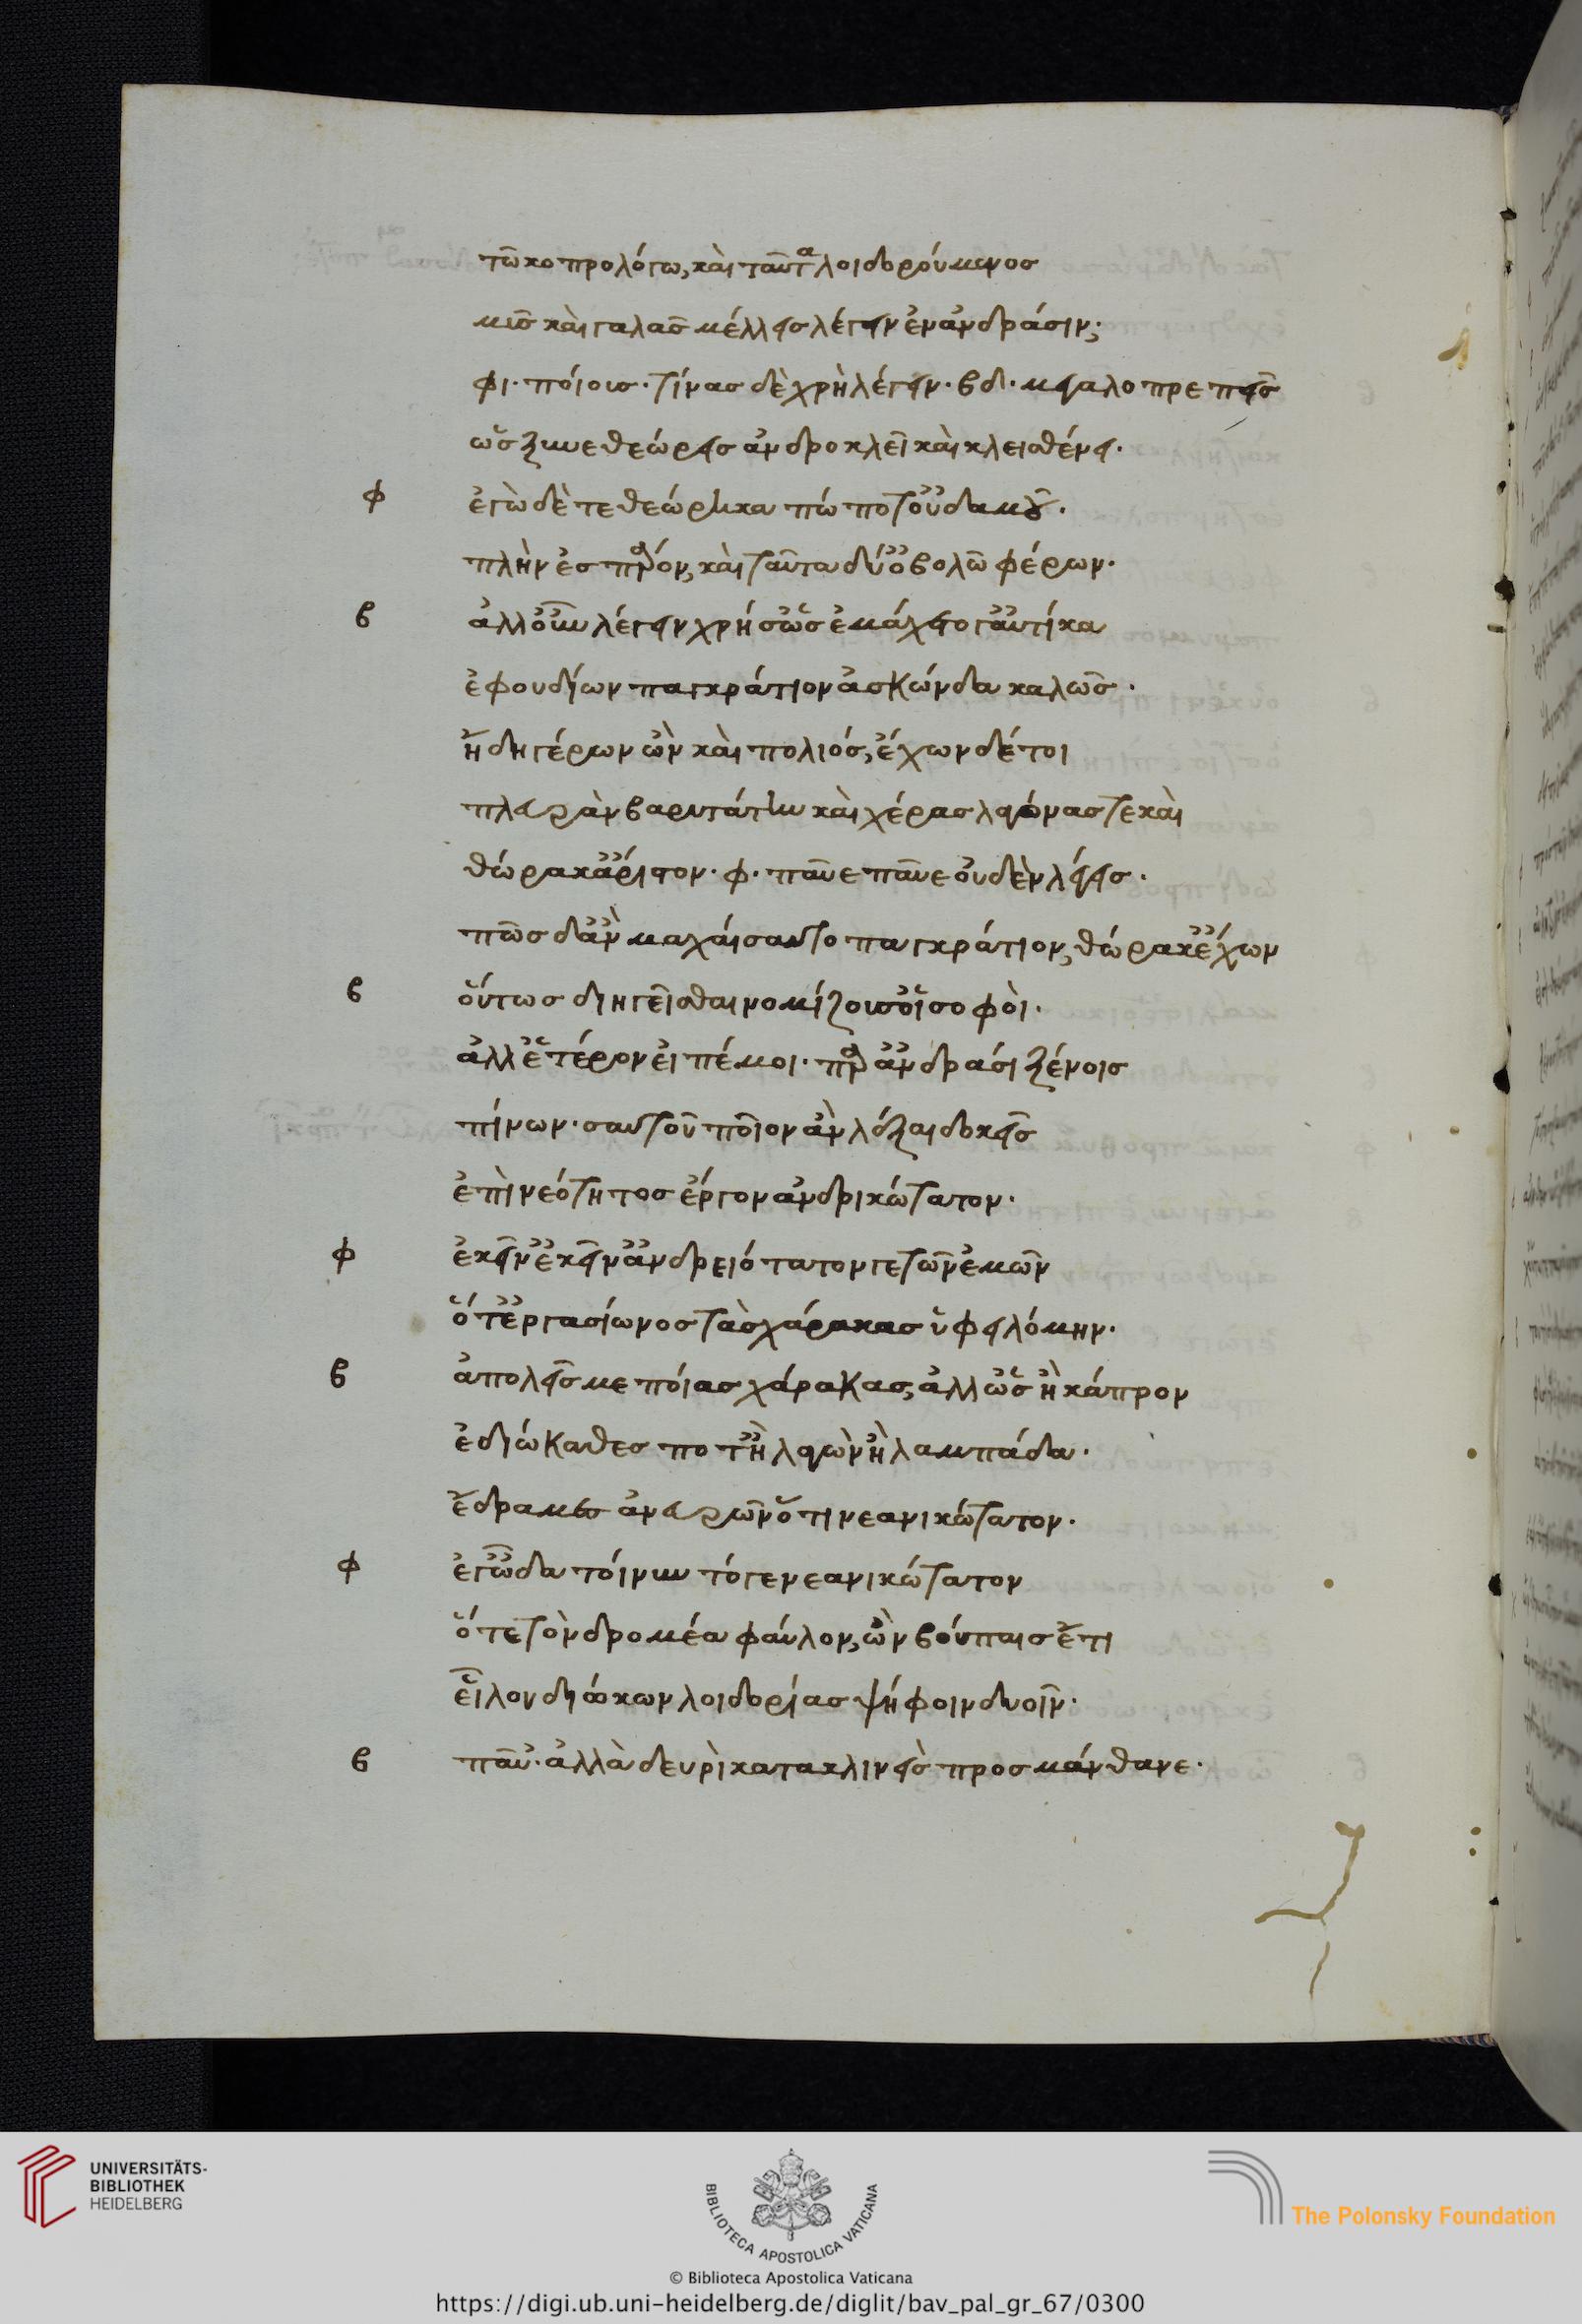 τῶ κοπρολόγω, καὶ ταῦτα λοιδορούμενος
μῦς καὶ γαλᾶς μέλλεις λέγειν ἐν ἀνδράσιν;
φι· ποίους· τίνας δὲ χρὴ λέγειν· βδ· μεγαλοπρεπεῖς
ὡς ξυνεθεώρεις ἀνδροκλεῖ καὶ κλεισθένει·
φ ἐγὼ δὲ τεθεώρηκα πώποτ' οὐδαμοῦ·
πλὴν ἐς πάρον, καὶ ταῦτα δύ' ὀβολῶ φέρων·
β ἀλλ' οὖν λέγειν χρή σ' ὡς ἐμάχετό γ' αὐτίκα
ἐφουδίων παγκράτιον ἀσκώνδα καλῶς·
ἤδη γέρων ὢν καὶ πολιός, ἔχων δέ τοι
πλευρὰν βαρυτάτην καὶ χέρας λαγόνας τε καὶ
θώρακ' ἄριστον· φ· παῦε παῦε οὐδὲν λέγεις·
πῶς δ' ἂν μαχέσαιτο παγκράτιον, θώρακ' ἔχων
β οὕτως διηγεῖσθαι νομίζουσ' οἱ σοφοὶ·
ἀλλ' ἑτέρον εἰπέ μοι· παρ' ἀνδράσι ξένοις
πίνων· σαυτοῦ ποῖον ἂν λέξαι δοκεῖς
ἐπὶ νεότητος ἔργον ἀνδρικώτατον·
φ ἐκεῖν' ἐκεῖν' ἀνδρειότατόν γε τῶν ἐμῶν
ὅτ' ἐργασίωνος τὰς χάρακας ὑφειλόμην·
β ἀπολεῖς με ποίας χάρακας, ἀλλ' ὡς ἢ κάπρον
ἐδιώκαθές ποτ' ἢ λαγὼν ἢ λαμπάδα·
ἔδραμες ἀνευρῶν ὅτι νεανικώτατον·
φ ἐγὦδα τοίνυν τό γε νεανικώτατον
ὅτε τὸν δρομέα φάυλλον, ὢν βούπαις ἔτι
εἷλον διώκων λοιδορίας ψήφοιν δυοῖν·
β παῦ'· ἀλλὰ δευρὶ κατακλινεὶς προσμάνθανε·
UNIVERSITÄTS-
BIBLIOTHEK
HEIDELBERG
BIBLIOTECA APOSTOLICA VATICANA
The Polonsky Foundation
© Biblioteca Apostolica Vaticana
https://digi.ub.uni-heidelberg.de/diglit/bav_pal_gr_67/0300